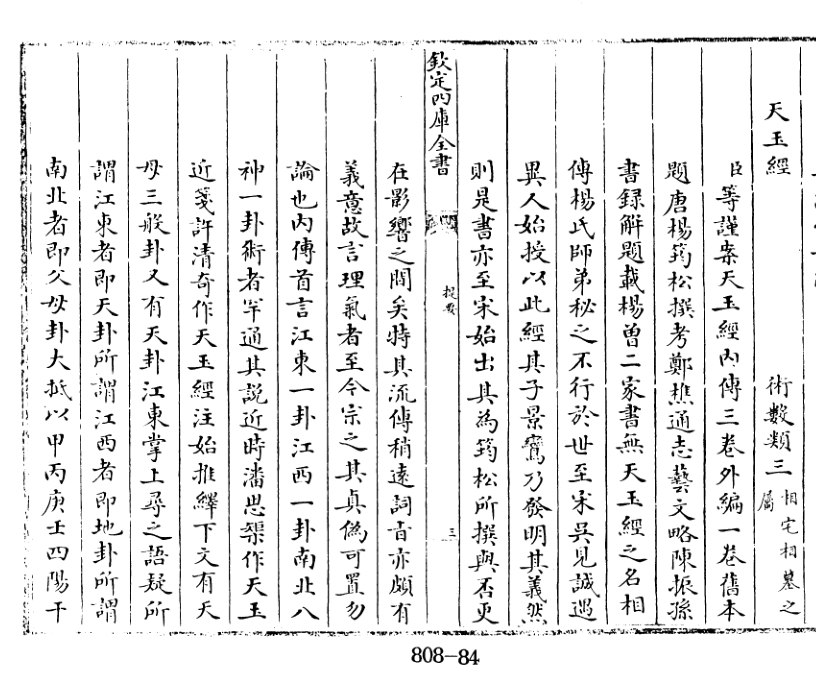 天玉經 術數類三 相宅相墓之屬
臣等謹案天玉經內傳三卷外編一卷舊本
題唐楊筠松撰考鄭樵通志藝文略陳振孫
書録解題載楊曾二家書無天玉經之名相
傳楊氏師弟秘之不行於世至宋吳見誠遇
異人始授以此經其子景鸞乃發明其義然
則是書亦至宋始出其為筠松所撰與否更
欽定四庫全書 提要 三
在影響之間矣特其流傳稍遠詞旨亦頗有
義意故言理氣者至今宗之其真偽可置勿
論也內傳首言江東一卦江西一卦南北八
神一卦術者罕通其説近時潘思榘作天玉
近箋許清奇作天玉經注始推繹下文有天
母三般卦又有天卦江東掌上尋之語疑所
謂江東者即天卦所謂江西者即地卦所謂
南北者即父母卦大抵以甲丙庚壬四陽干
808-84